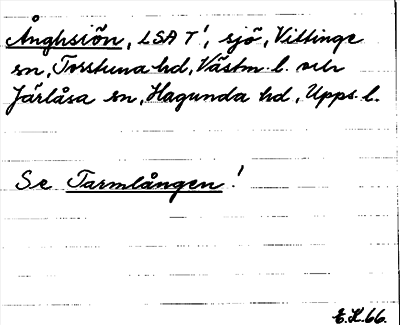 Ånghsiön, LSA T!, sjö, Vittinge
sn, Torstuna hd, Västm. l. och
Järlåsa sn, Hagunda hd, Upps. l.
Se Tarmlången!
E.K.66.